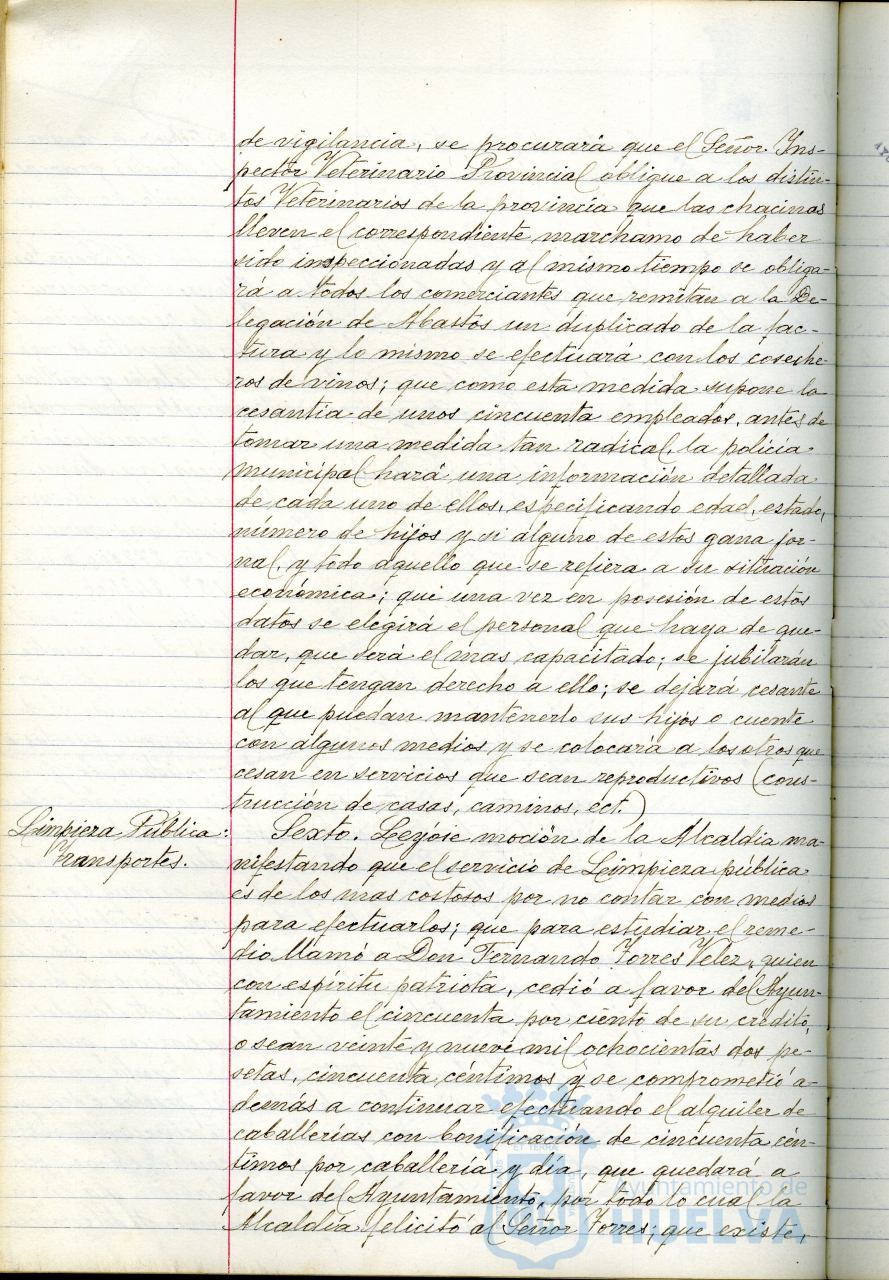 de vigilancia, se procurará que el Señor Ins-
pector Veterinario Provincial obligue a los distin-
tos Veterinarios de la provincia que las chacinas
lleven el correspondiente marchamo de haber
sido inspeccionadas y al mismo tiempo se obliga-
rá a todos los comerciantes que remitan a la De-
legación de Abastos un duplicado de la fac-
tura y lo mismo se efectuará con los coseche-
ros de vinos; que como esta medida supone la
cesantia de unos cincuenta empleados, antes de
tomar una medida tan radical, la policía
municipal hará una información detallada
de cada uno de ellos, especificando edad, estado,
número de hijos y si alguno de estos gana jor-
nal, y todo aquello que se refiera a su situación
económica; que una vez en posesión de estos
datos se elegirá el personal que haya de que-
dar, que será el mas capacitado; se jubilarán
los que tengan derecho a ello; se dejará cesante
al que puedan mantenerlo sus hijos o cuente
con algunos medios y se colocaría a los otros que
cesan en servicios que sean reproductivos (cons-
trucción de casas, caminos, ect.)
Limpieza Pública:
Transportes.
Sexto. Leyóse moción de la Alcaldía ma-
nifestando que el servicio de Limpieza pública
es de los mas costosos por no contar con medios
para efectuarlos; que para estudiar el reme-
dio llamó a Don Fernando Torres Velez, quien
con espíritu patriota, cedió a favor del Ayun-
tamiento el cincuenta por ciento de su crédito,
o sean veinte y nueve mil ochocientas dos pe-
setas, cincuenta céntimos y se comprometió a-
demás a continuar efectuando el alquiler de
caballerías con bonificación de cincuenta cén-
timos por caballería y día, que quedará a
favor del Ayuntamiento, por todo lo cual la
Alcaldía felicitó al Señor Torres; que existe,
Ayuntamiento de
HUELVA